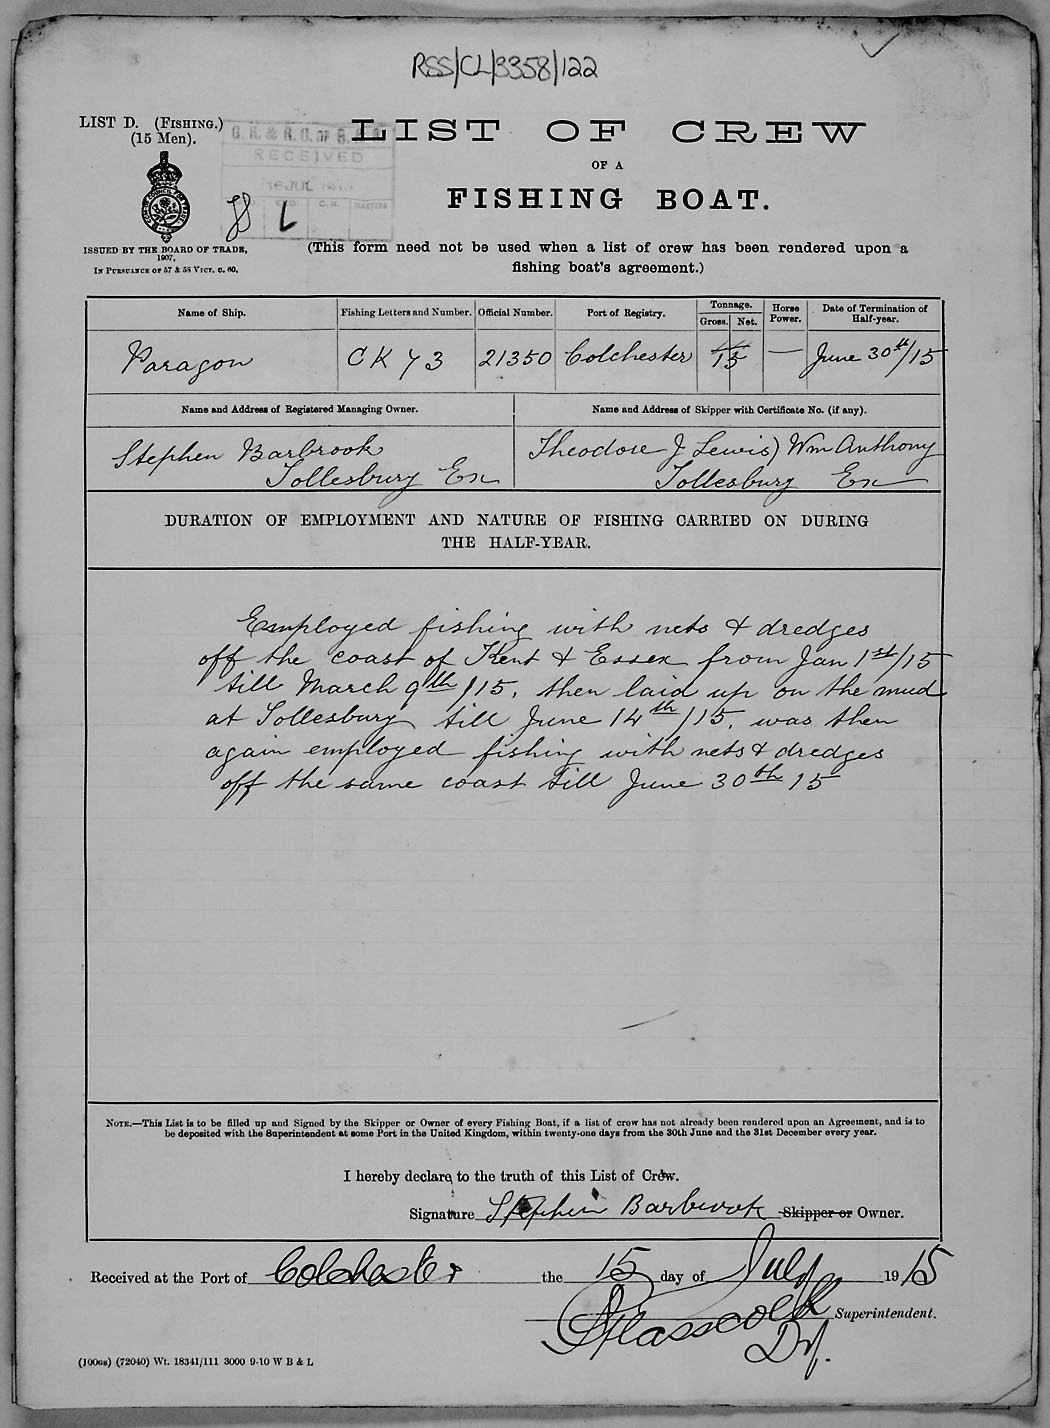 RSS/CL/3358/122
LIST D. (FISHING.)
(15 Men).
RECEIVED
16 JUL
LIST OF CREW
OF A
FISHING BOAT.
ISSUED BY THE BOARD OF TRADE,
1907,
IN PURSUANCE OF 57 & 58 VICT. C. 60.
(This form need not be used when a list of crew has been rendered upon a
fishing boat's agreement.)
Name of Ship. Fishing Letters and Number. Official Number. Port of Registry. Tonnage. Gross. Net. Horse Power. Date of Termination of Half-year.
Paragon CK 73 21350 Colchester 15 — June 30th/15
Name and Address of Registered Managing Owner. Name and Address of Skipper with Certificate No. (if any).
Stephen Barbrook Theodore J Lewis) Wm Anthony
Tollesbury Ex Tollesbury Ex
DURATION OF EMPLOYMENT AND NATURE OF FISHING CARRIED ON DURING
THE HALF-YEAR.
Employed fishing with nets & dredges
off the coast of Kent & Essex from Jan 1st/15
till March 9th/15, then laid up on the mud
at Tollesbury till June 14th/15, was then
again employed fishing with nets & dredges
off the same coast till June 30th 15
NOTE.—This List is to be filled up and Signed by the Skipper or Owner of every Fishing Boat, if a list of crew has not already been rendered upon an Agreement, and is to
be deposited with the Superintendent at some Port in the United Kingdom, within twenty-one days from the 30th June and the 31st December every year.
I hereby declare to the truth of this List of Crew.
Signature Stephen Barbrook Skipper or Owner.
Received at the Port of Colchester the 15 day of July 1915
Glasscock Superintendent.
Dy.
(100GS) (72040) Wt. 18341/111 3000 9-10 W B & L